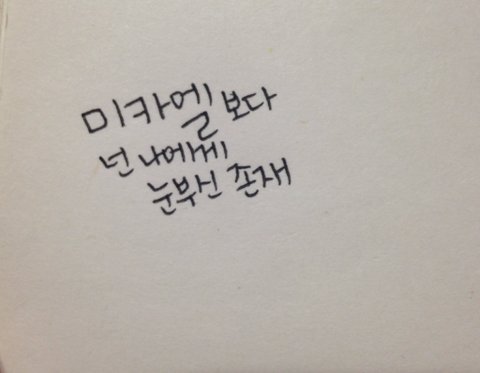 미카엘보다
넌 나에게
눈부신 존재